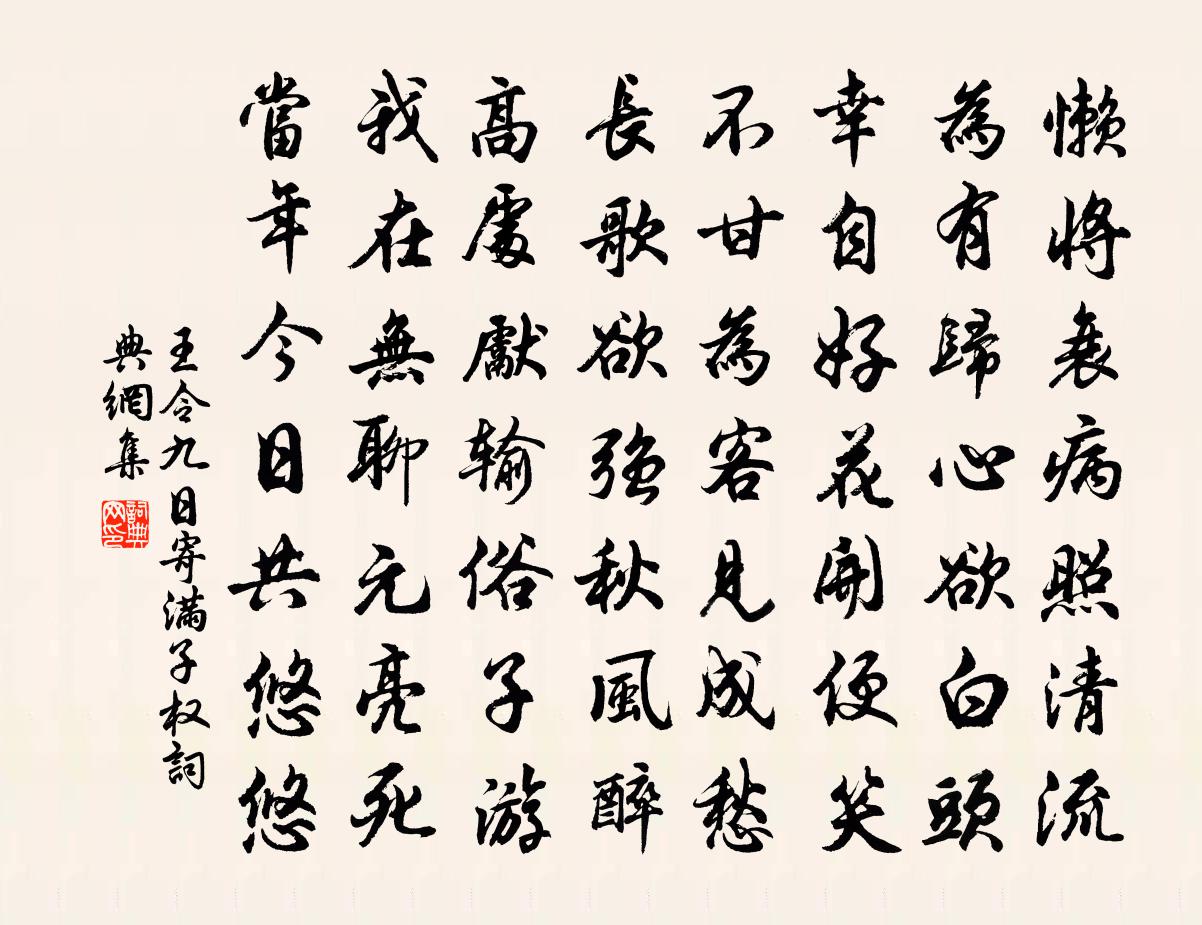 懶將衰病照清流
為有歸心欲白頭
幸自好花開便笑
不甘為客見成愁
長歌欲強秋風醉
高處厭輸俗子游
我在無聊元亮死
當年今日共悠悠
王令九日寄滿子权詞
典網集
詞典
网印